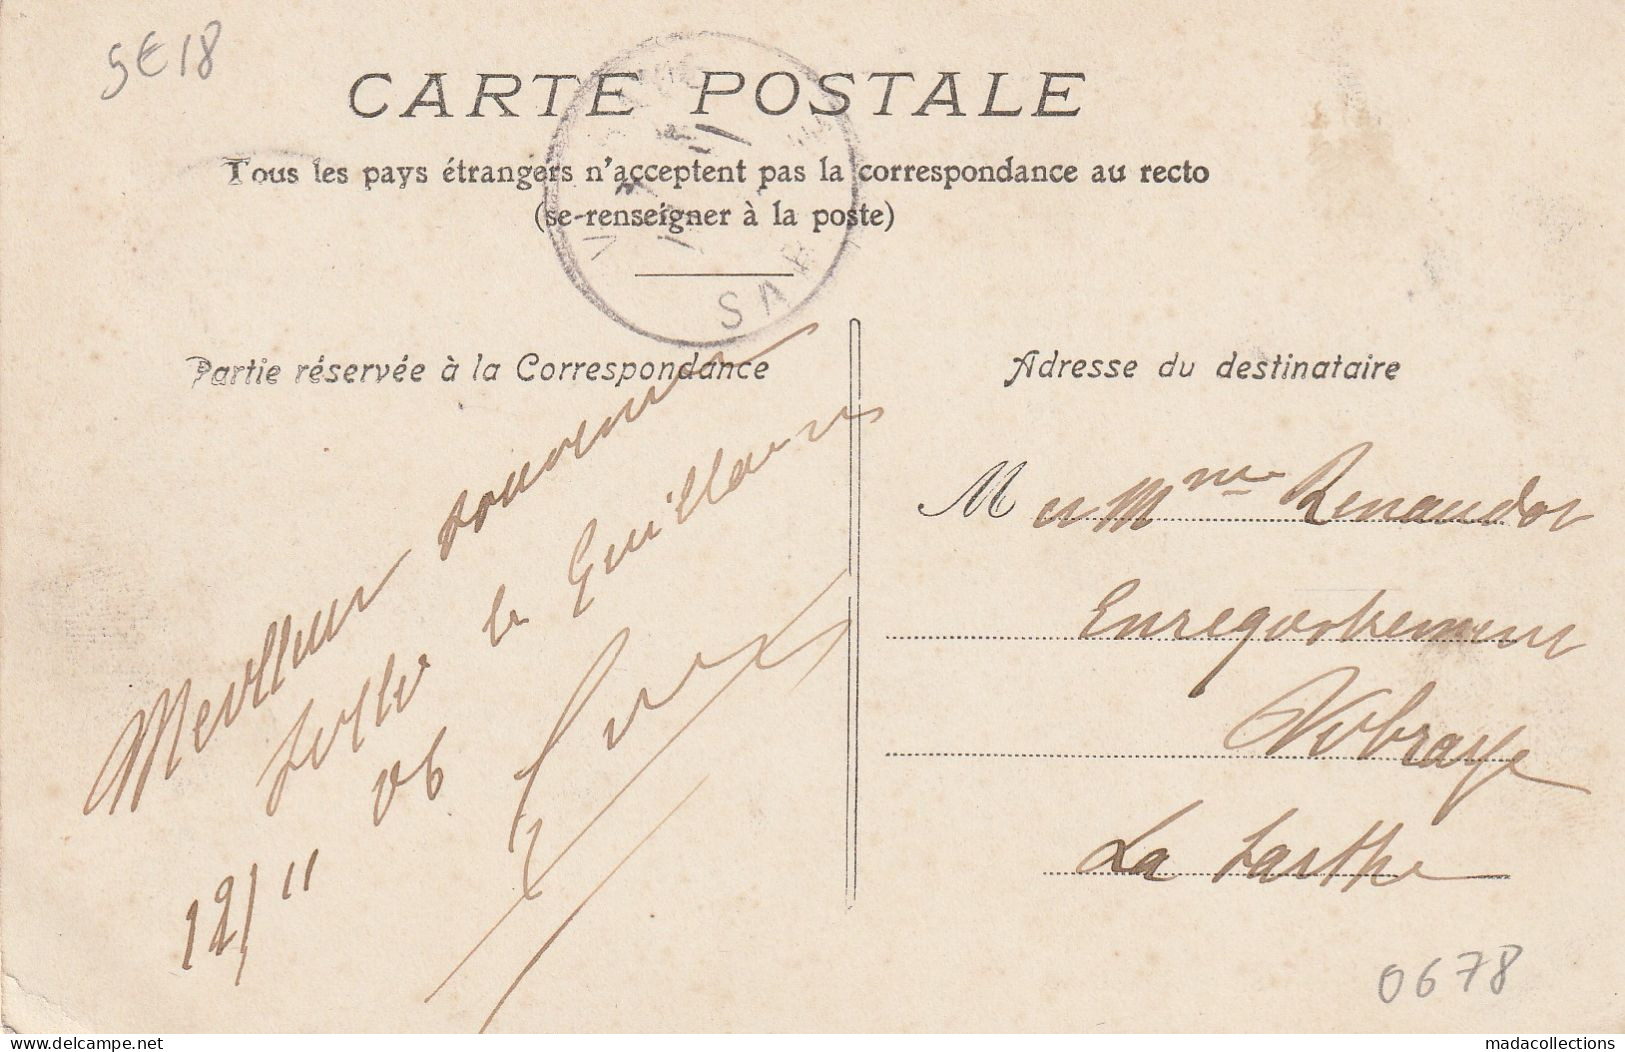 5E18
CARTE POSTALE
Tous les pays étrangers n'acceptent pas la correspondance au recto
(se-renseigner à la poste)
SAR
Partie réservée à la Correspondance
Meilleur souvenir
le Guillaume
12/11 06
Adresse du destinataire
M et Mme Renaudot
Enregistrement
Vibraye
La Sarthe
0678
madacollections